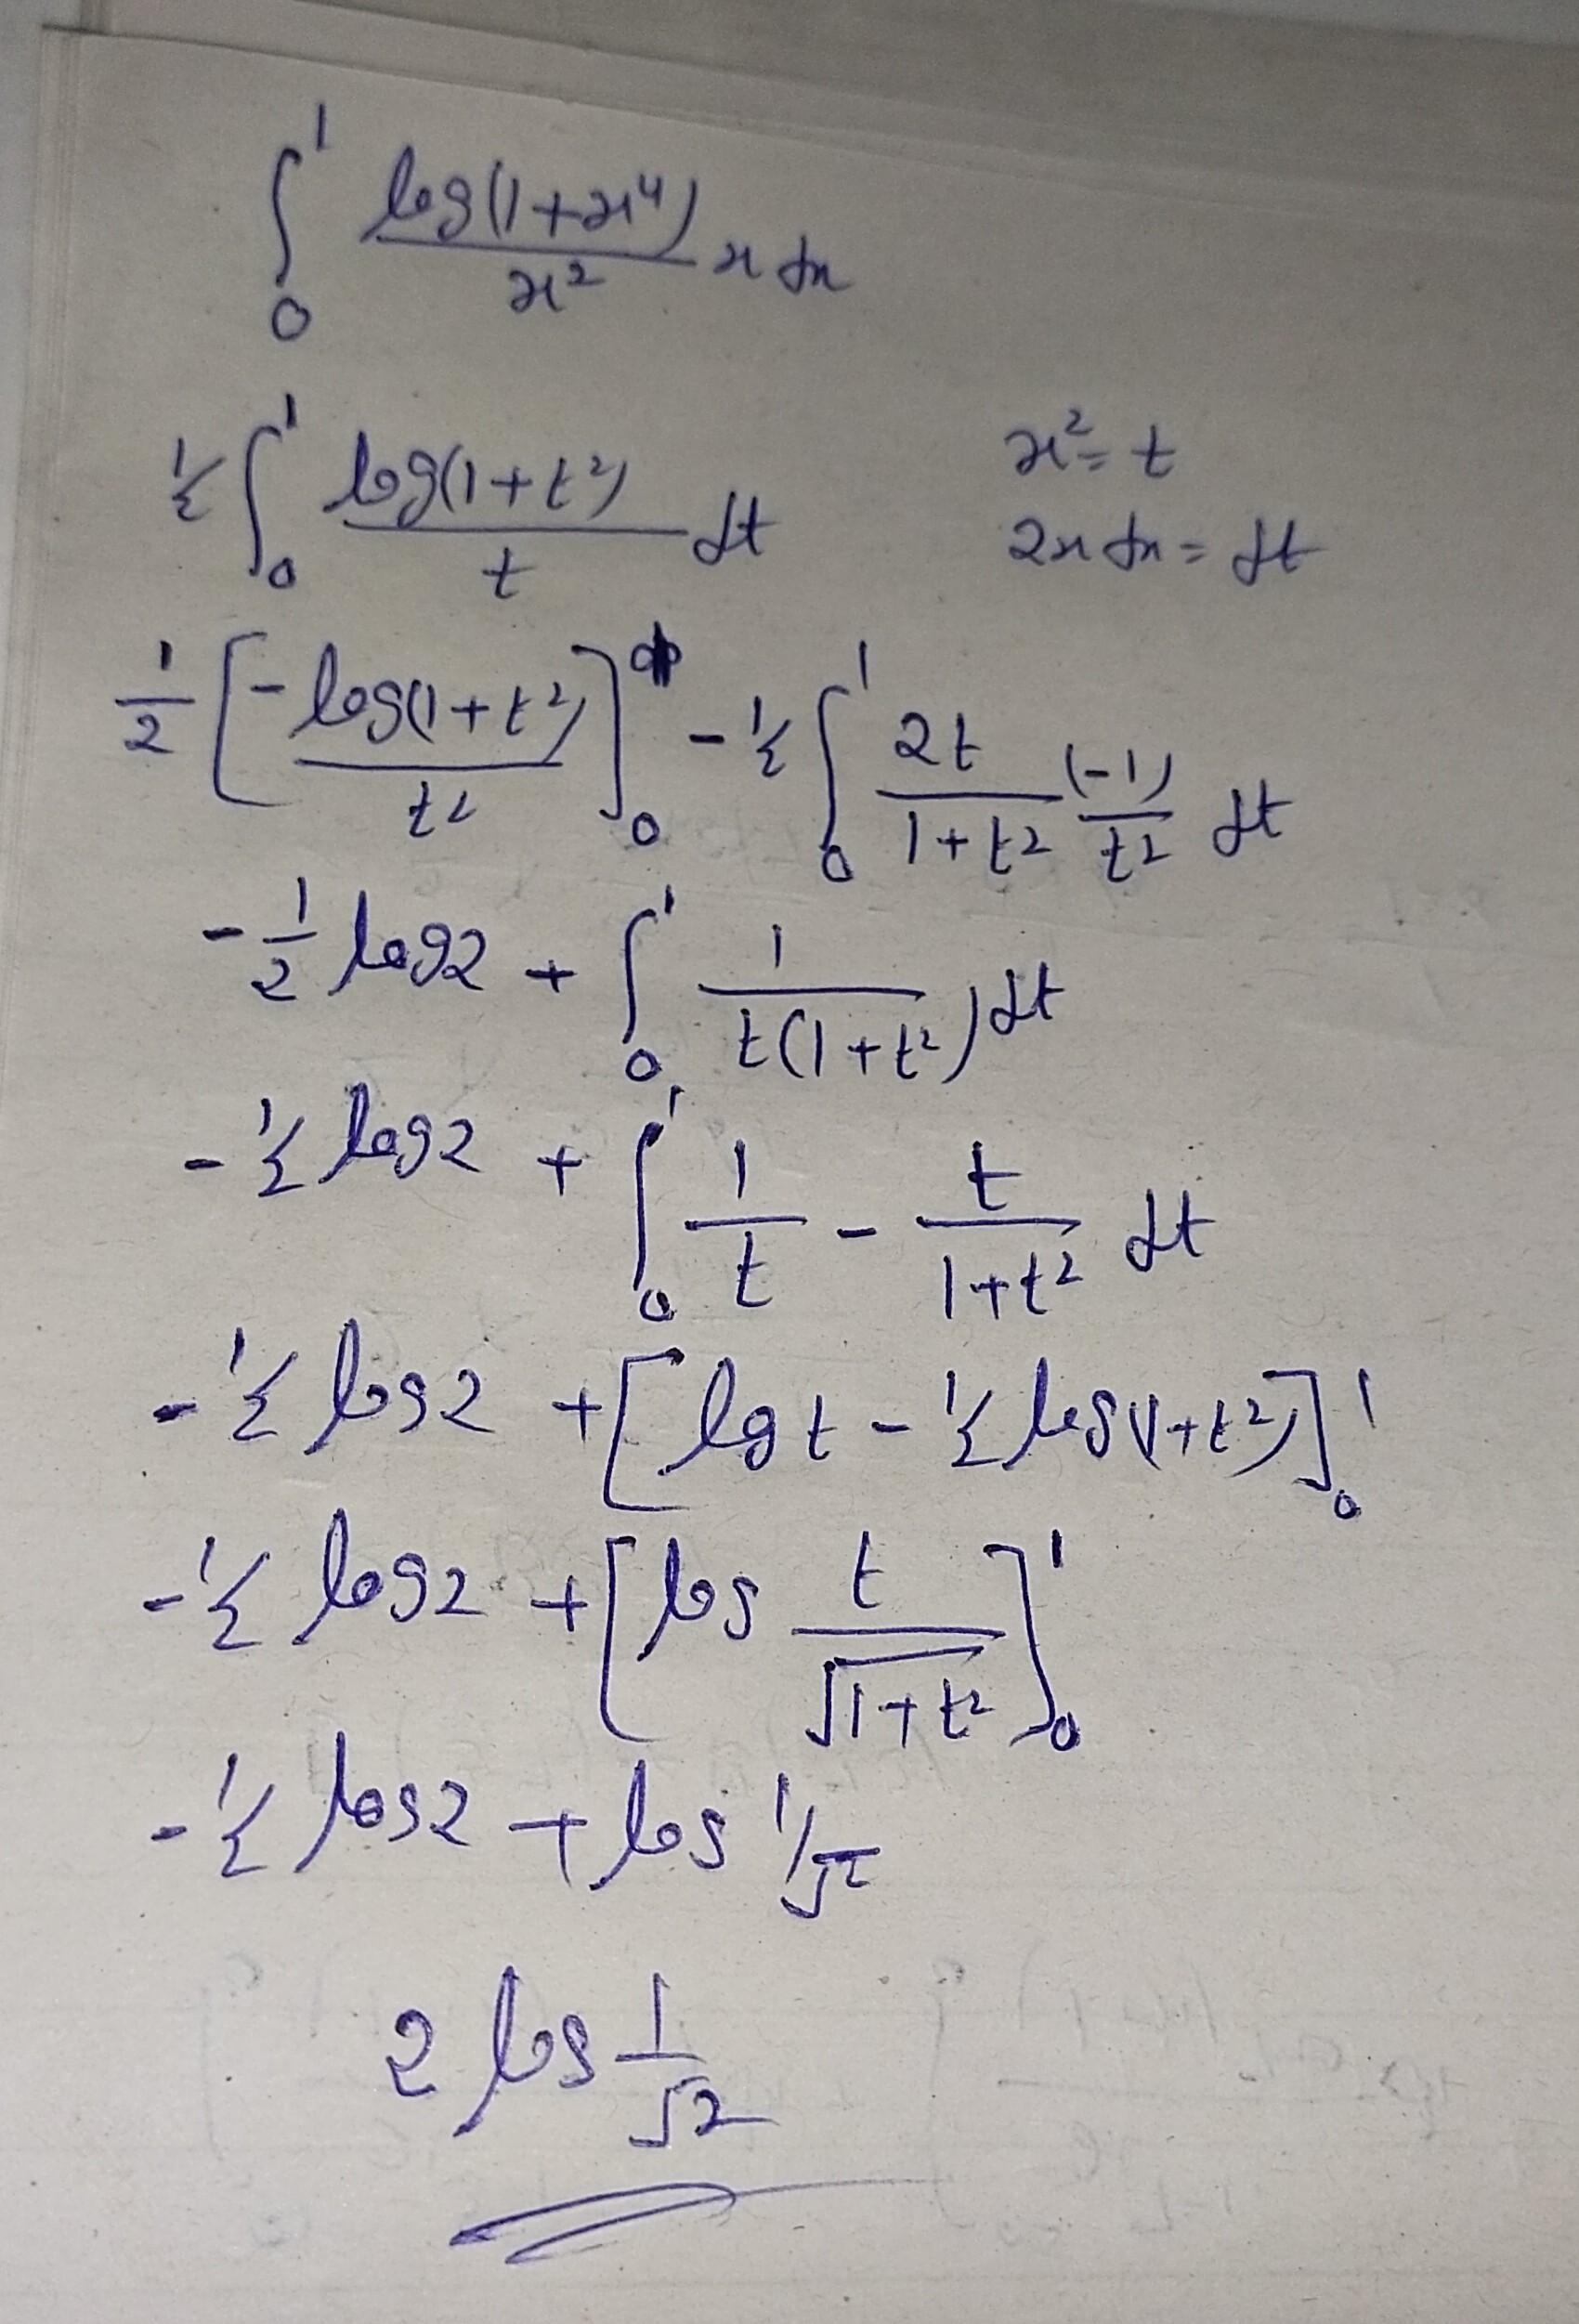 ∫₀¹ log(1+x⁴)/x² x dx
½ ∫₀¹ log(1+t²)/t dt    x² = t
2x dx = dt
1/2 [-log(1+t²)/t²]₀ - ½ ∫₀¹ 2t/(1+t²) (-1)/t² dt
-1/2 log2 + ∫₀¹ 1/(t(1+t²)) dt
-½ log2 + ∫₀¹ 1/t - t/(1+t²) dt
-½ log2 + [log t - ½ log(1+t²)]₀¹
-½ log2 + [log t/√(1+t²)]₀¹
-½ log2 + log 1/√2
2 log 1/√2